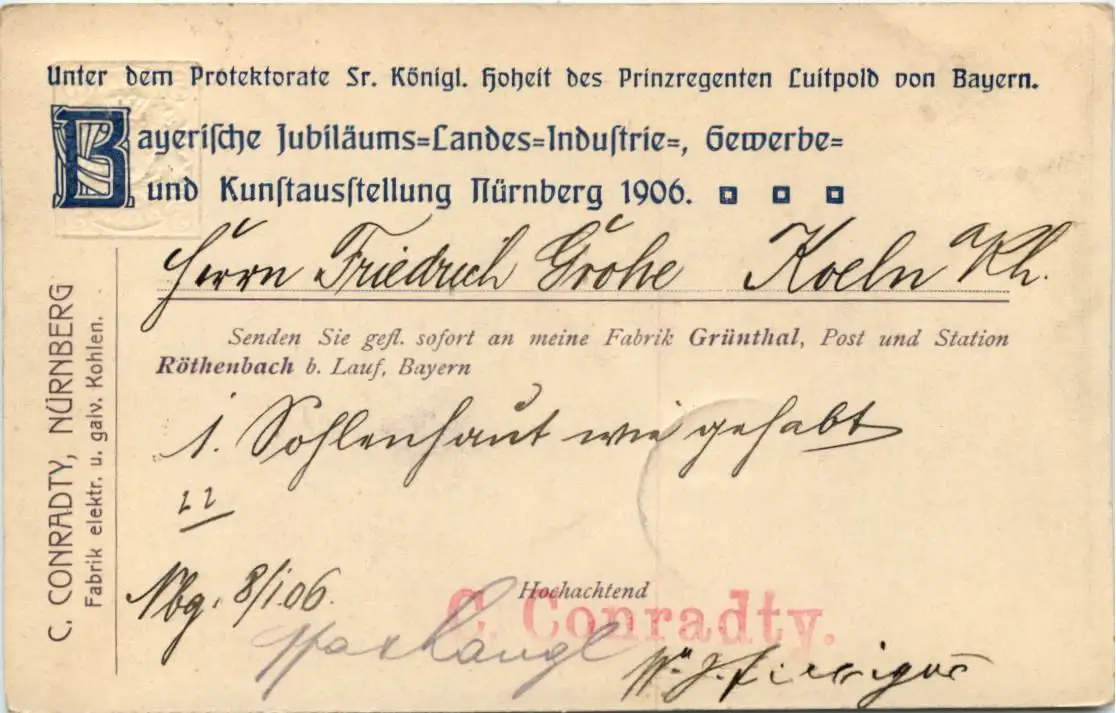 Unter dem Protektorate Sr. Königl. Hoheit des Prinzregenten Luitpold von Bayern.
Bayerische Jubiläums=Landes=Industrie=, Gewerbe=
und Kunstausstellung Nürnberg 1906.
Herrn Friedrich Grohe Koeln a/Rh.
Senden Sie gefl. sofort an meine Fabrik Grünthal, Post und Station
Röthenbach b. Lauf, Bayern
1. Sohlenhaut wie gehabt
22
Nbg. 8/1.06.
Hochachtend
C. Conradty.
C. CONRADTY, NÜRNBERG
Fabrik elektr. u. galv. Kohlen.